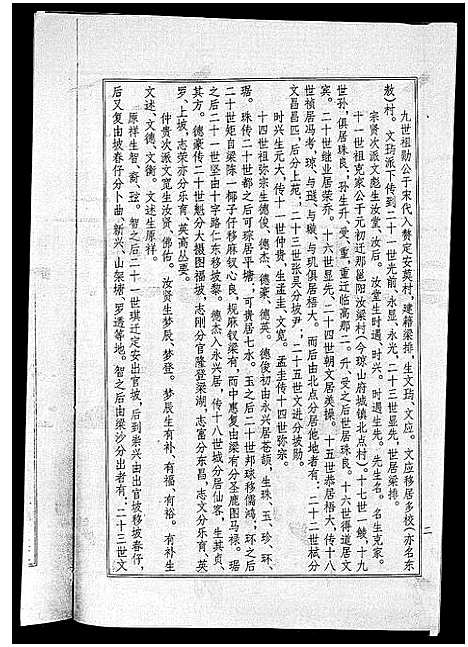 九世祖勋公于宋代入赘定安莫村，建籍梁排，生文玚、文应。文应移居多校（亦名东
敖）村。文玚派下传到二十一世光前，永显、永光，二十三世显先，世居梁排。
宗贤次派文彪生汝堂、汝后。汝堂生时通、时兴。时遇生先。先生名。名生克家。
十一世祖克家公于元初迁那邕阳汝梁村（今琼山府城镇北点村）。十七世一鲮，十九
世孙，俱居珠良，孙生升、受、重，重迁临高那二。升、受之后世居珠良。十六世得道居文
宾。二十世继业居荣乔。十六世显先、二十四世朝文居美操。十五世恭居梧大（传十八
世祯居冯考，琼、与琏、与璥、与玑俱居梧大。而后由北点分居他地者有：二十二世栻分
文昌昌匹，后分上苑；二十三世张吴分坡尹，二十五世文进分坡勋。
时兴生元大，传十一世仲贵，生孟圭、文宽。孟圭传十四世弥宗。
十四世祖弥宗生德俊、德杰、德豪、德英。德俊初由永兴居苍颉，生珠、玉、珍、环、
琚。珠传二十世都之后可琼居平塘，可贵居七水。玉之后二十世邦球移儒鸿；环之后
二十世矩自梁陈一椰子仔移麻钗心良，规麻钗梁有，而中惠复由梁有分圣鹿图马禄。琚
之后二十一世坚由十字路仁东移坡黎。德杰入永兴居，传十八世域分居仙客，生其贞、
其方。德豪传二十世魁分大摄图福坡，志刚分官隆登梁湖，志富分东昌，志文分乐育、英
罗、上坡，志荣亦分乐育、英高丛要。
仲贵次派文宽生汝贤、佛佑。汝贤生梦辰、梦登。梦辰生有补、有福、有裕。有补生
文述、文德、文衡。文述生原祥。
原祥生智、裔、玹。智之后二十一世琪迁定安出官坡，后到崇兴由出官坡移坡春仔，
后又复由坡春仔分卜曲、新兴、山架塘、罗透等地。智之后由梁沙分出者有：二十三世文
二